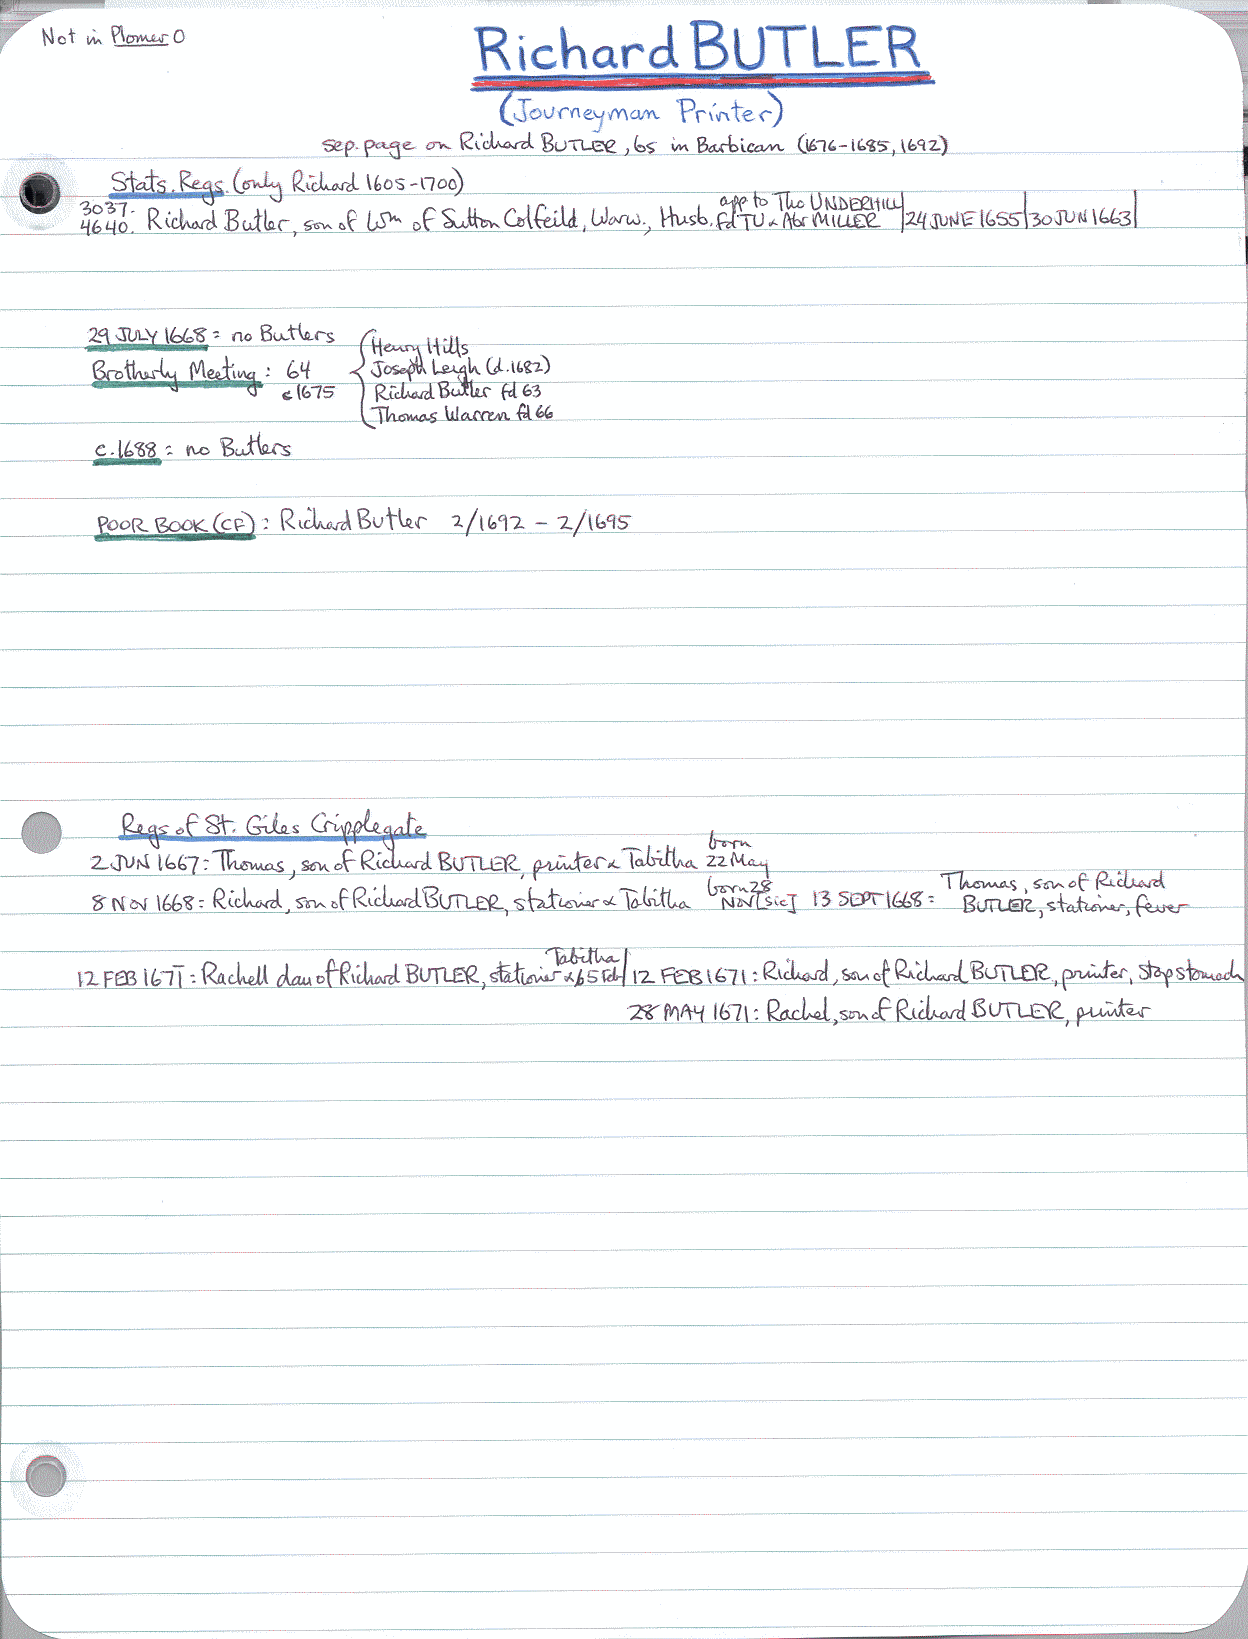 Not in Plomer O
Richard BUTLER
(Journeyman Printer)
sep. page on Richard BUTLER, bs in Barbican (1676-1685, 1692)
Stats. Regs. (only Richard 1605-1700)
app to Tho UNDERHILL
3037.
4640. Richard Butler, son of Wm of Sutton Colfeild, Warw., Husb. fd TU & Abr MILLER | 24 JUNE 1655 | 30 JUN 1663 |
29 JULY 1668 = no Butlers
Henry Hills
Brotherly Meeting : 64 Joseph Leigh (d. 1682)
c 1675 Richard Butler fd 63
Thomas Warren fd 66
c. 1688 = no Butlers
POOR BOOK (CF) : Richard Butler 2/1692 - 2/1695
Regs of St. Giles Cripplegate
born
2 JUN 1667 : Thomas, son of Richard BUTLER, printer & Tabitha 22 May
born 28
8 NOV 1668 = Richard, son of Richard BUTLER, stationer & Tabitha NOV [sic] 13 SEPT 1668 = Thomas, son of Richard
BUTLER, stationer, fever
Tabitha
12 FEB 1671 : Rachell dau of Richard BUTLER, stationer & b5 Feb | 12 FEB 1671 : Richard, son of Richard BUTLER, printer, stopstomach
28 MAY 1671 : Rachel, son of Richard BUTLER, printer